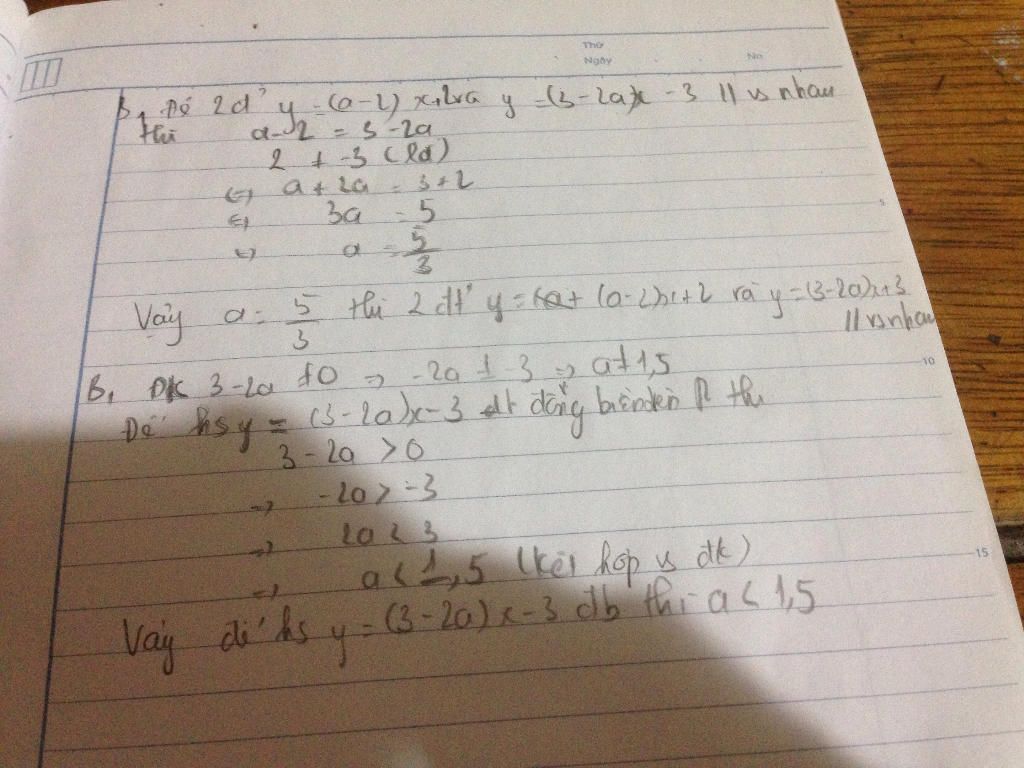 Thứ
Ngày No
B, Để 2đ' y = (a-2) x+2 và y = (3-2a)x - 3 // vs nhau
thì a-2 = 3-2a
2 ≠ -3 (lđ)
<=> a+2a = 3+2
<=> 3a = 5
<=> a = 5/3
5
Vậy a = 5/3 thì 2 đt' y = (a-2)x+2 và y = (3-2a)x+3
// vs nhau
10
B, ĐK 3-2a ≠ 0 => -2a ≠ -3 => a ≠ 1,5
Để hs y = (3-2a)x-3 đồng biến trên R thì
3-2a > 0
=> -2a > -3
=> 2a < 3
=> a < 1,5 (kết hợp vs đk)
15
Vậy để hs y = (3-2a)x-3 đb thì a < 1,5